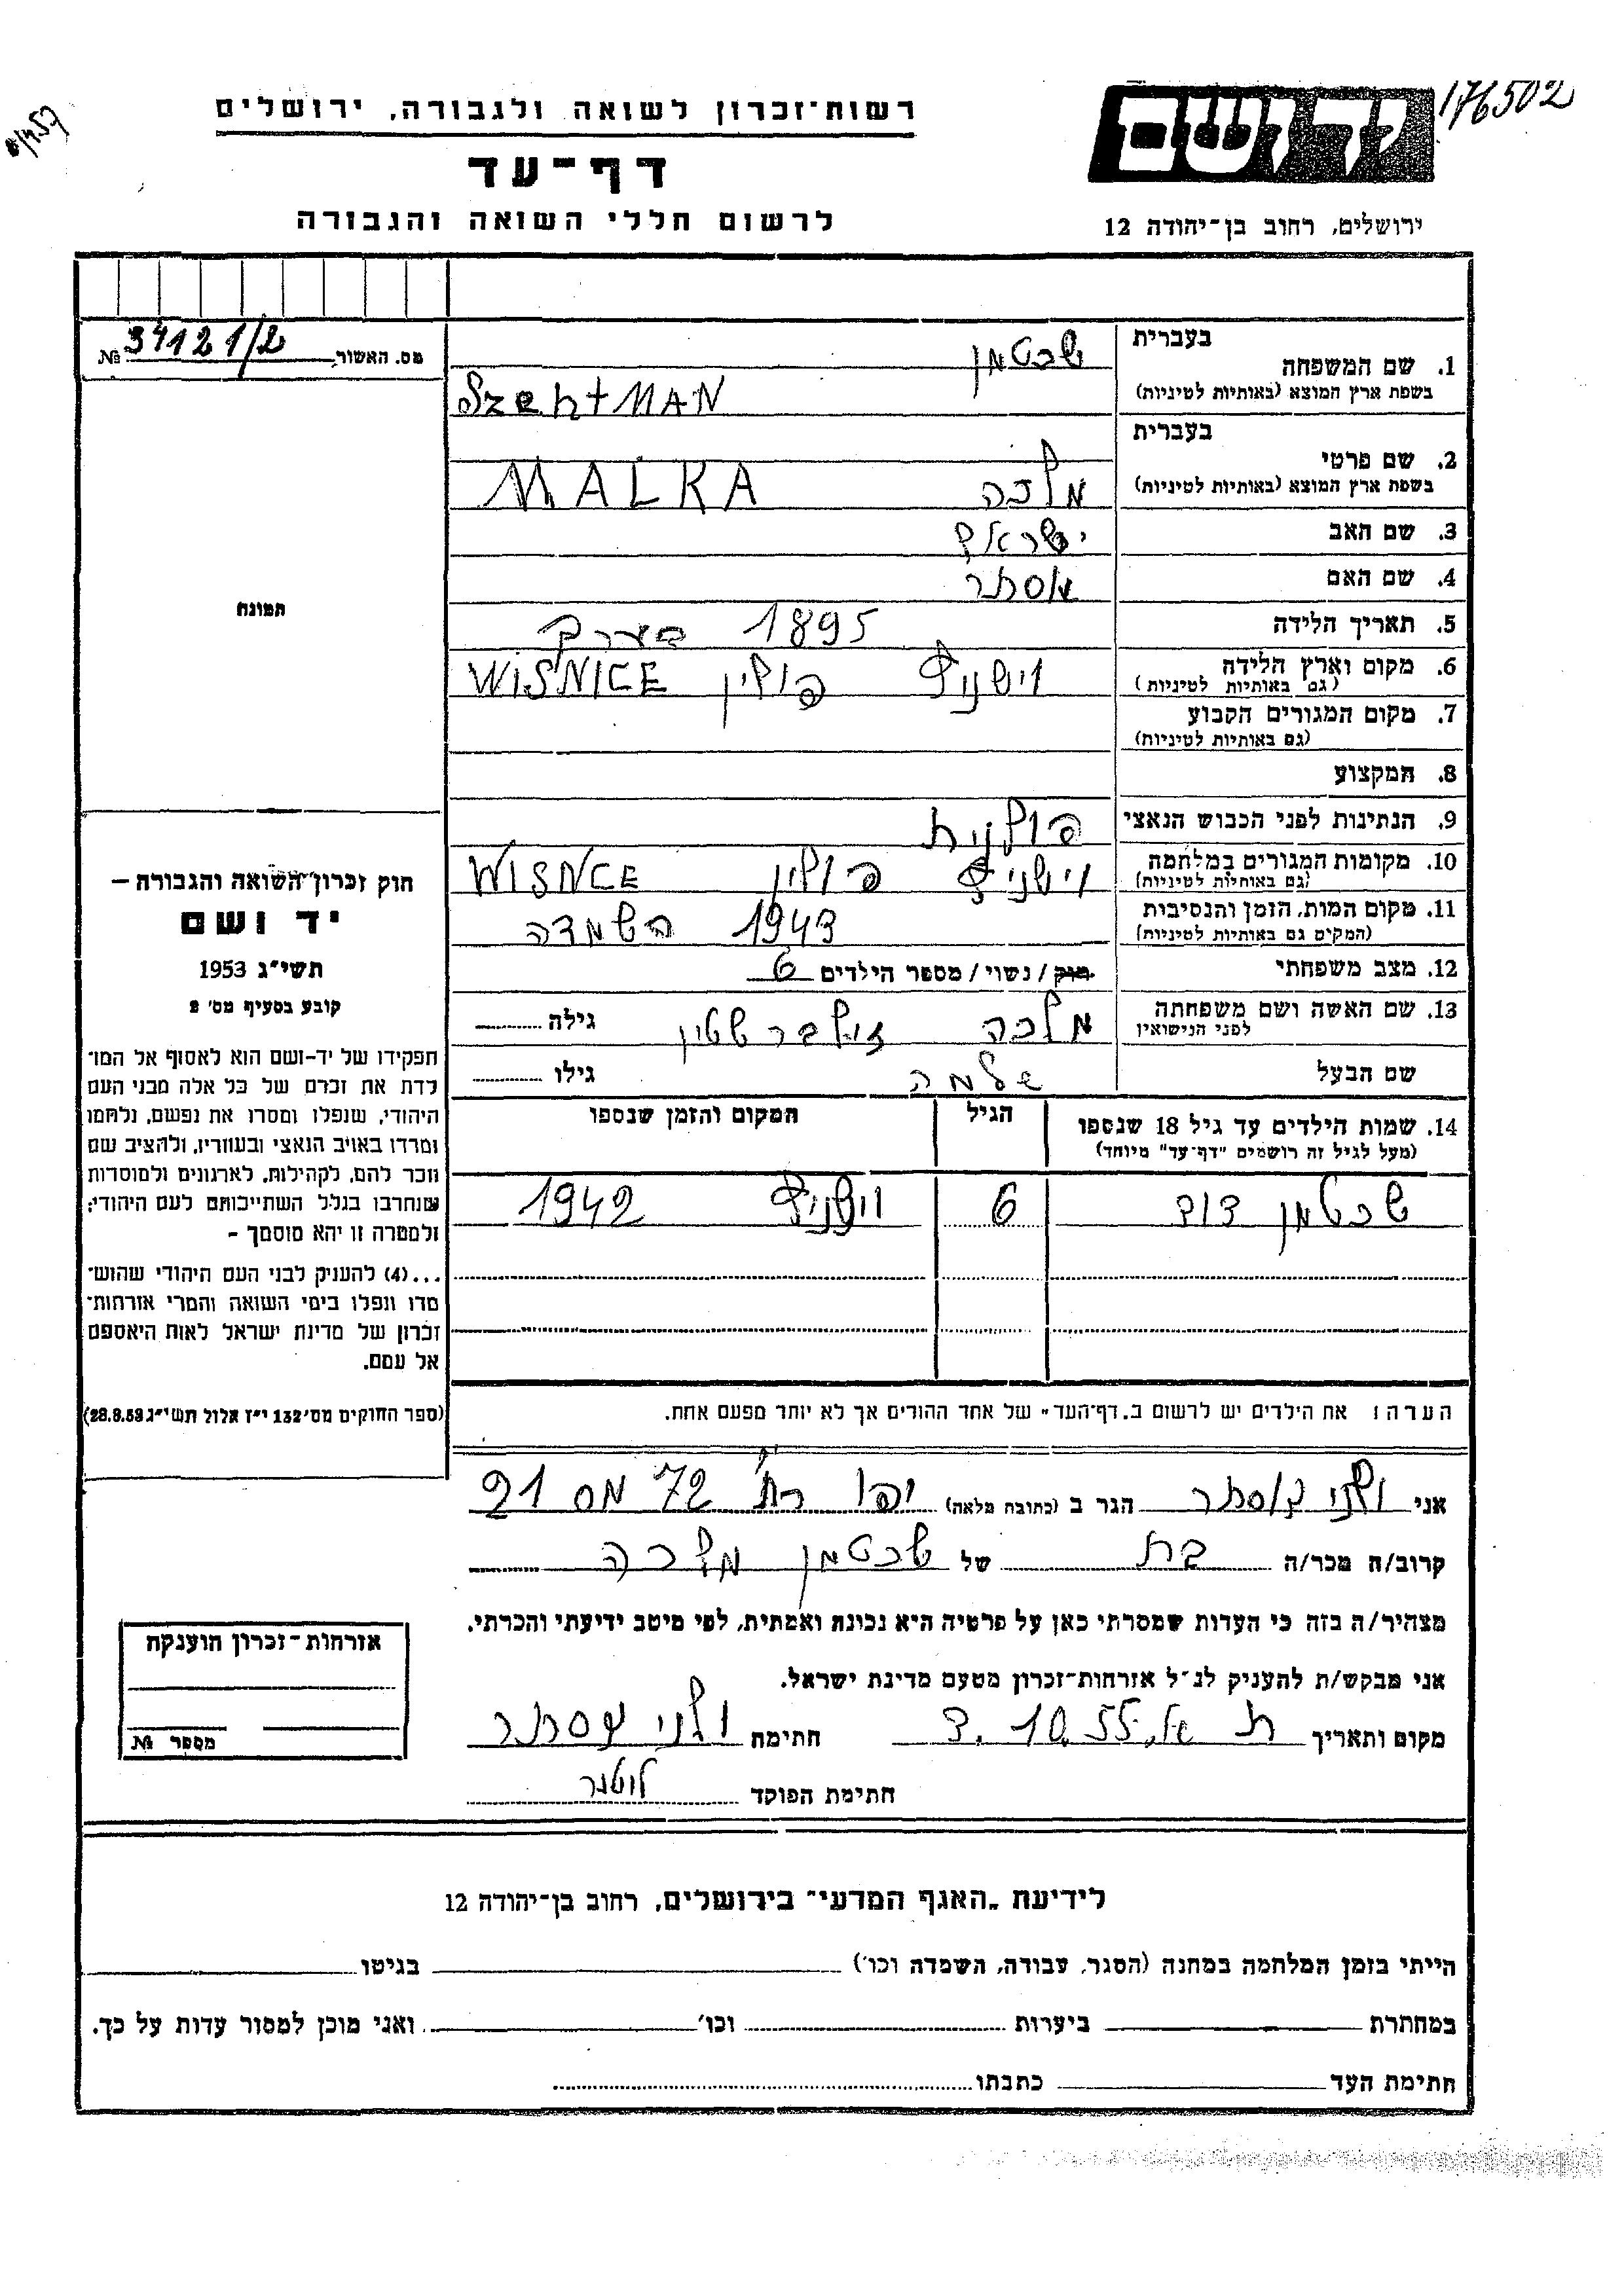 176502
רשות-זכרון לשואה ולגבורה, ירושלים
יד ושם
דף-עד
לרשום חללי השואה והגבורה
ירושלים, רחוב בן-יהודה 12
מס. האשור № 34121/2
בעברית
שכטמן
1. שם המשפחה
בשפת ארץ המוצא (באותיות לטיניות) SzehtMAN
בעברית
2. שם פרטי
בשפת ארץ המוצא (באותיות לטיניות) מלכה MALKA
3. שם האב ישראל
4. שם האם אסתר
5. תאריך הלידה 1895 בערך
6. מקום וארץ הלידה וישניץ פולין WISNICE
(גם באותיות לטיניות)
7. מקום המגורים הקבוע
(גם באותיות לטיניות)
8. המקצוע
9. הנתינות לפני הכבוש הנאצי פולנית
10. מקומות המגורים במלחמה וישניץ פולין WISNCE
(גם באותיות לטיניות)
11. מקום המות, הזמן והנסיבות 1943 השמדה
(המקום גם באותיות לטיניות)
12. מצב משפחתי רווק / נשוי / מספר הילדים 6
13. שם האשה ושם משפחתה מלכה זילברשטין גילה
לפני הנישואין
שם הבעל שלמה גילו
14. שמות הילדים עד גיל 18 שנספו הגיל המקום והזמן שנספו
(מעל לגיל זה רושמים "דף-עד" מיוחד)
שכטמן דוד 6 וישניץ 1942
הערה: את הילדים יש לרשום ב"דף-העד" של אחד ההורים אך לא יותר מפעם אחת.
תמונה
חוק זכרון השואה והגבורה —
יד ושם
תשי"ג 1953
קובע בסעיף מס' 2
תפקידו של יד-ושם הוא לאסוף אל המו־
לדת את זכרם של כל אלה מבני העם
היהודי, שנפלו ומסרו את נפשם, נלחמו
ומרדו באויב הנאצי ובעוזריו, ולהציב שם
וזכר להם, לקהילות, לארגונים ולמוסדות
שנחרבו בגלל השתייכותם לעם היהודי;
ולמטרה זו יהא מוסמך -
...(4) להעניק לבני העם היהודי שהוש־
מדו ונפלו בימי השואה והמרי אזרחות־
זכרון של מדינת ישראל לאות היאספם
אל עמם.
(ספר החוקים מס' 132 י"ז אלול תשי"ג 28.8.53)
אני ולני אסתר הגר ב (כתובת מלאה) יפו רח' 72 מס 21
קרוב/ה מכר/ה בת של שכטמן מלכה
מצהיר/ה בזה כי העדות שמסרתי כאן על פרטיה היא נכונה ואמתית, לפי מיטב ידיעתי והכרתי.
אני מבקש/ת להעניק לנ"ל אזרחות-זכרון מטעם מדינת ישראל.
מקום ותאריך ת א, 3.10.55 חתימה ולני אסתר
חתימת הפוקד
אזרחות-זכרון הוענקה
מספר №
לידיעת "האגף המדעי" בירושלים, רחוב בן-יהודה 12
הייתי בזמן המלחמה במחנה (הסגר, עבודה, השמדה וכו') בגיטו
במחתרת ביערות וכו' ואני מוכן למסור עדות על כך.
חתימת העד כתבתו